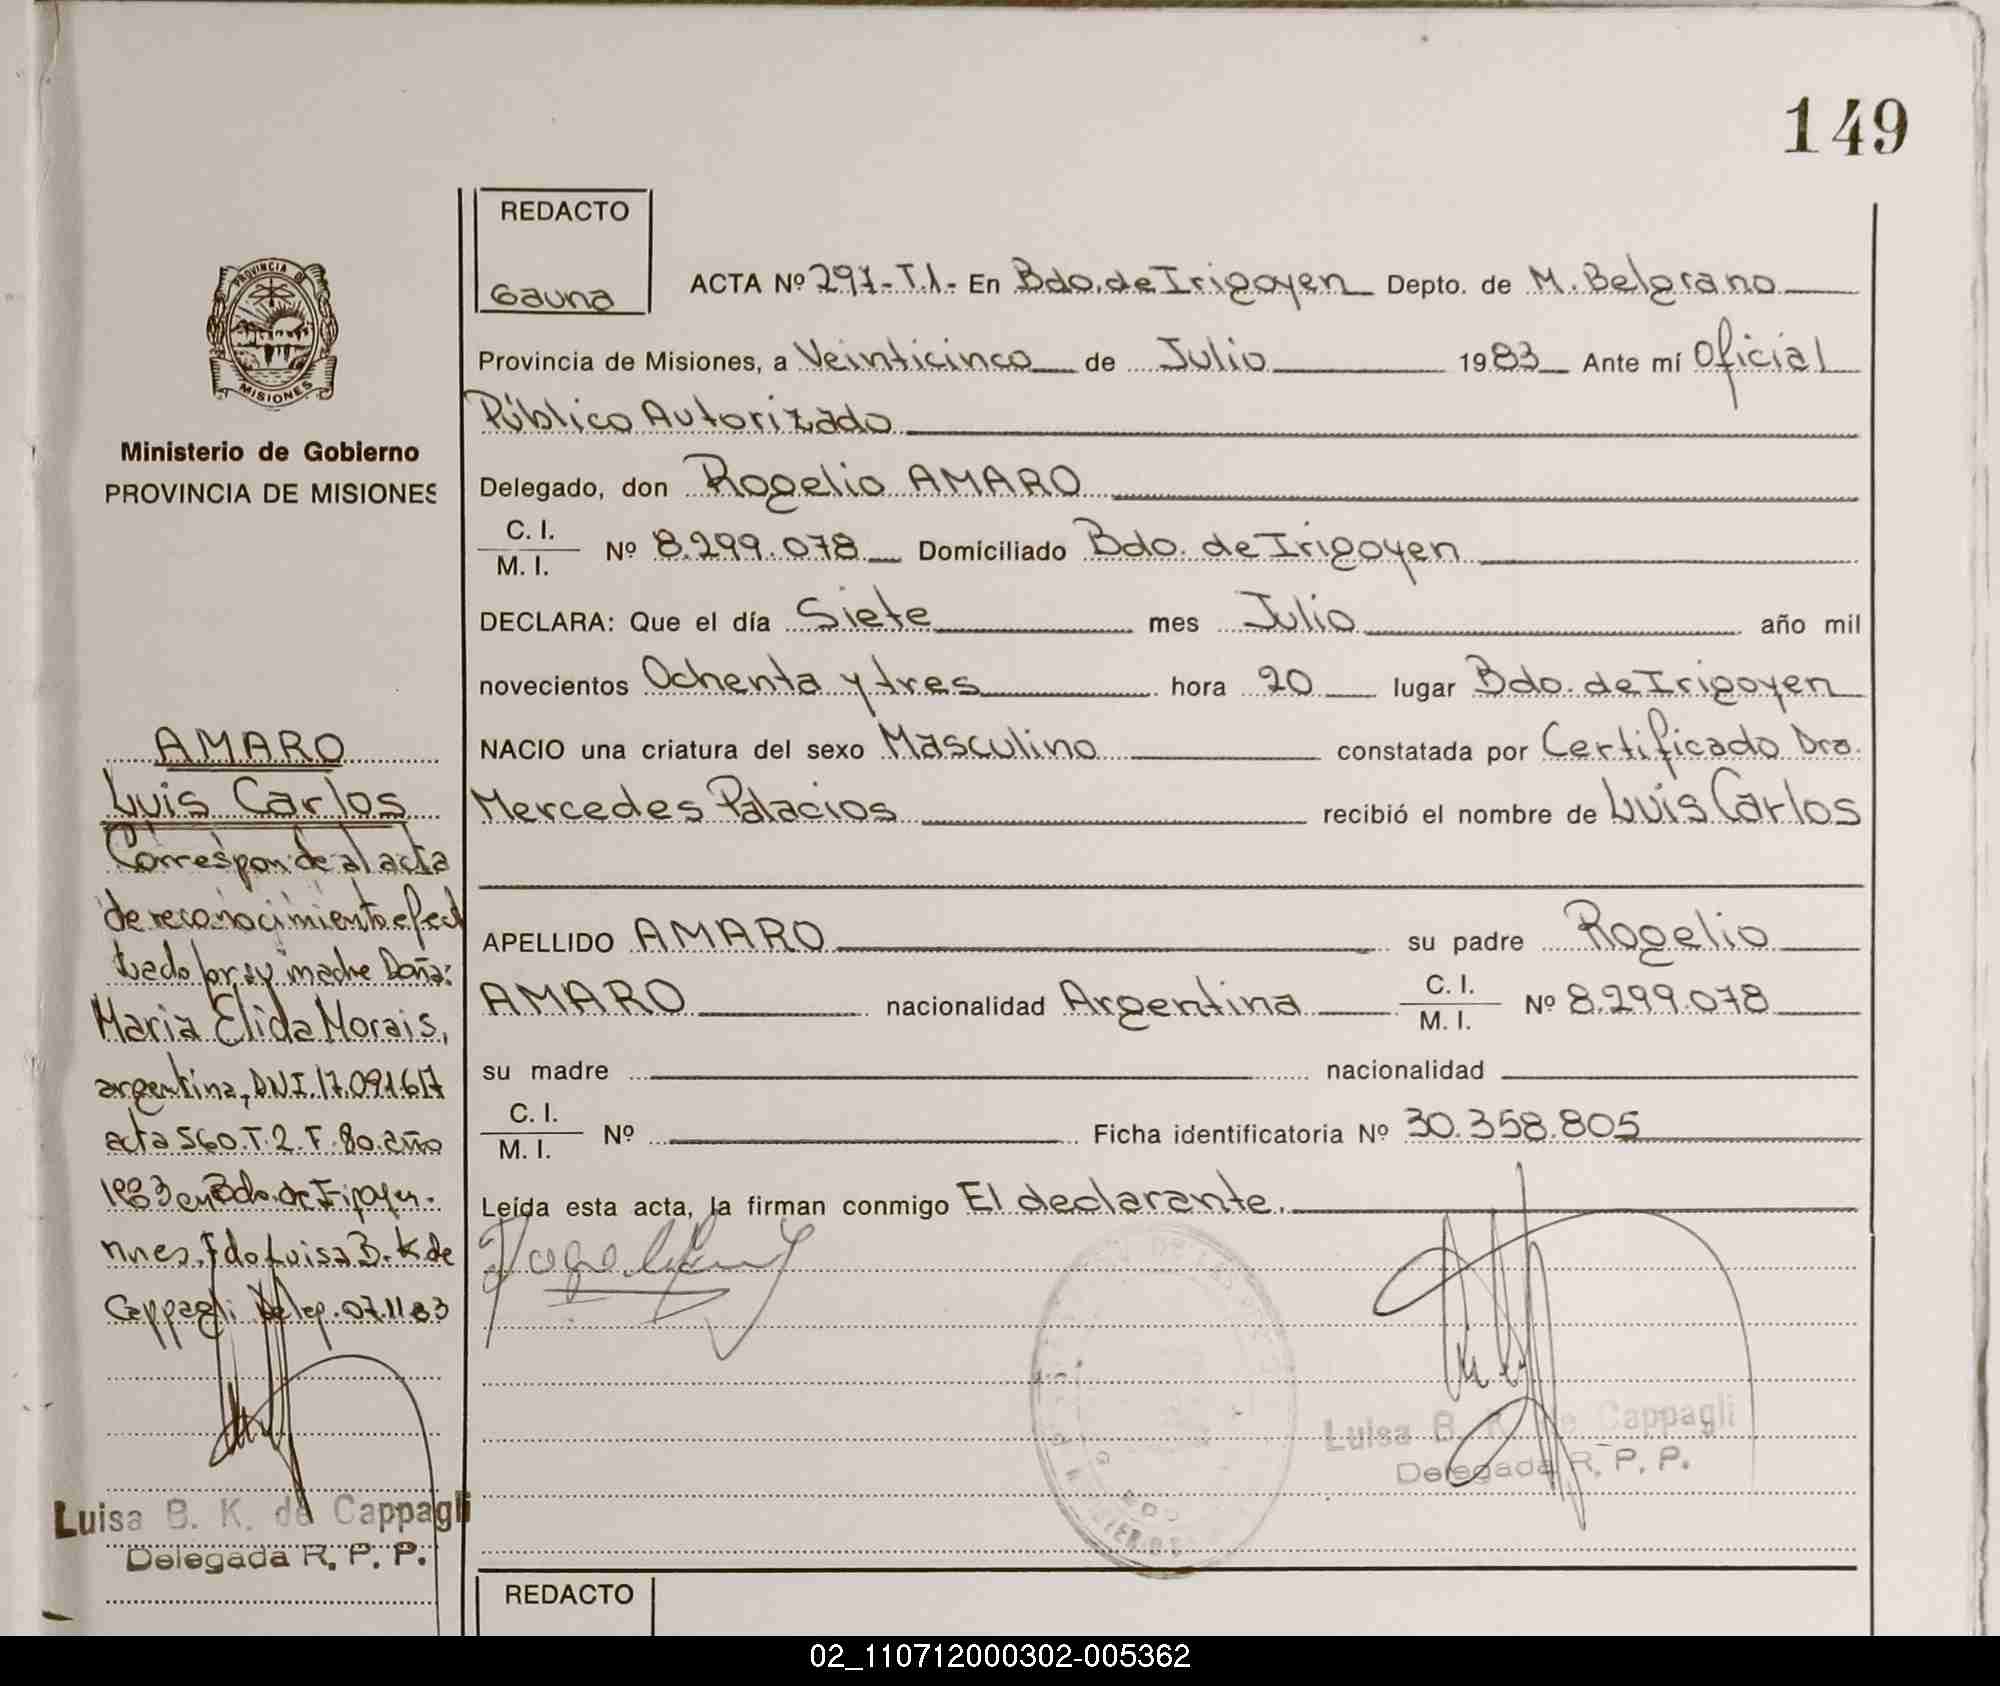 149
REDACTO
Gauna
ACTA Nº 297-T.1.- En Bdo. de Irigoyen Depto. de M. Belgrano
Provincia de Misiones, a Veinticinco de Julio 1983 Ante mí Oficial
Público Autorizado
Delegado, don Rogelio AMARO
C. I.
M. I. Nº 8.299.078 Domiciliado Bdo. de Irigoyen
DECLARA: Que el día Siete mes Julio año mil
novecientos Ochenta y tres hora 20 lugar Bdo. de Irigoyen
NACIO una criatura del sexo Masculino constatada por Certificado Dra.
Mercedes Palacios recibió el nombre de Luis Carlos
APELLIDO AMARO su padre Rogelio
AMARO nacionalidad Argentina C. I.
M. I. Nº 8.299.078
su madre nacionalidad
C. I.
M. I. Nº Ficha identificatoria Nº 30.358.805
Leída esta acta, la firman conmigo El declarante.
Luisa B. K. de Cappagli
Delegada R. P. P.
REDACTO
PROVINCIA DE
MISIONES
Ministerio de Gobierno
PROVINCIA DE MISIONES
AMARO
Luis Carlos
Corresponde al acta
de reconocimiento efec
tuado por su madre Doña:
Maria Elida Morais,
argentina, DNI. 17.091.617
acta 560. T. 2. F. 80. año
1983 en Bdo. de
Mnes. Fdo Luisa B. K de
Cappagli Deleg. 07.11 83
Luisa B. K. de Cappagli
Delegada R. P. P.
02_110712000302-005362